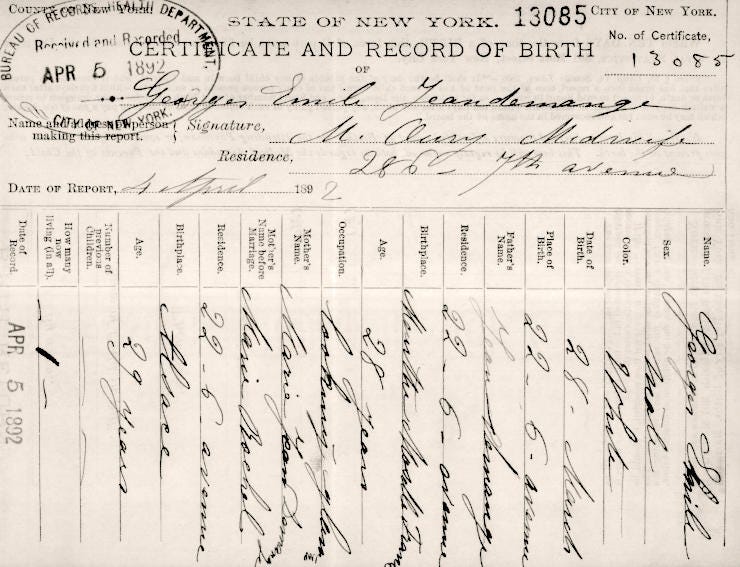 COUNTY OF NEW YORK.
STATE OF NEW YORK.
13085
CITY OF NEW YORK.
BUREAU OF RECORDS, HEALTH DEPARTMENT,
Received and Recorded
APR 5 1892
CITY OF NEW YORK.
CERTIFICATE AND RECORD OF BIRTH
No. of Certificate,
13085
OF
Georges Emile Jeandemange
Name and address of person making this report.
Signature, M. Oury Midwife
Residence, 286 - 7th avenue
DATE OF REPORT, 4 April 1892
Name. Georges Emile
Sex. Male
Color. White
Date of Birth. 28 - March
Place of Birth. 22 - 6 - avenue
Father's Name. Jean Demange
Residence. 22 - 6 - avenue
Birthplace. Meurthe Moselle France
Age. 28 years
Occupation. looking-glass
Mother's Name. Marie Jean Demange
Mother's Name before Marriage. Marie Bochel
Residence. 22 - 6 avenue
Birthplace. Alsace
Age. 29 years
Number of Previous Children.
How many now living (in all). - 1 -
Date of Record APR 5 1892